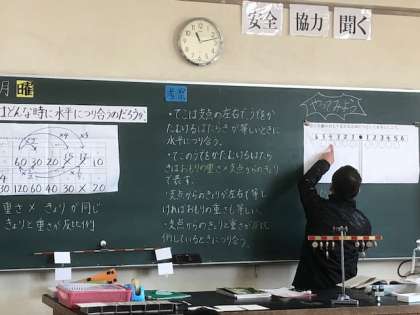 安全 協力 聞く
月 曜
どんな時に水平につり合うのだろうか
60 30 20 10
120 60 40 30 × 20
重さ × きょりが同じ
きょりと重さが反比例
考察
・てこは支点の左右でうでをか
たむけるはたらきが等しいときに
水平につり合う。
・てこのうでをかたむけるはたら
きはおもりの重さ×支点からのきょり
で表す。
・支点からのきょりが左右で等し
ければおもりの重さも等しい。
・支点からのきょりと重さが反比
例しているときにつり合う。
やってみよう
6 5 4 3 2 1 1 2 3 4 5 6